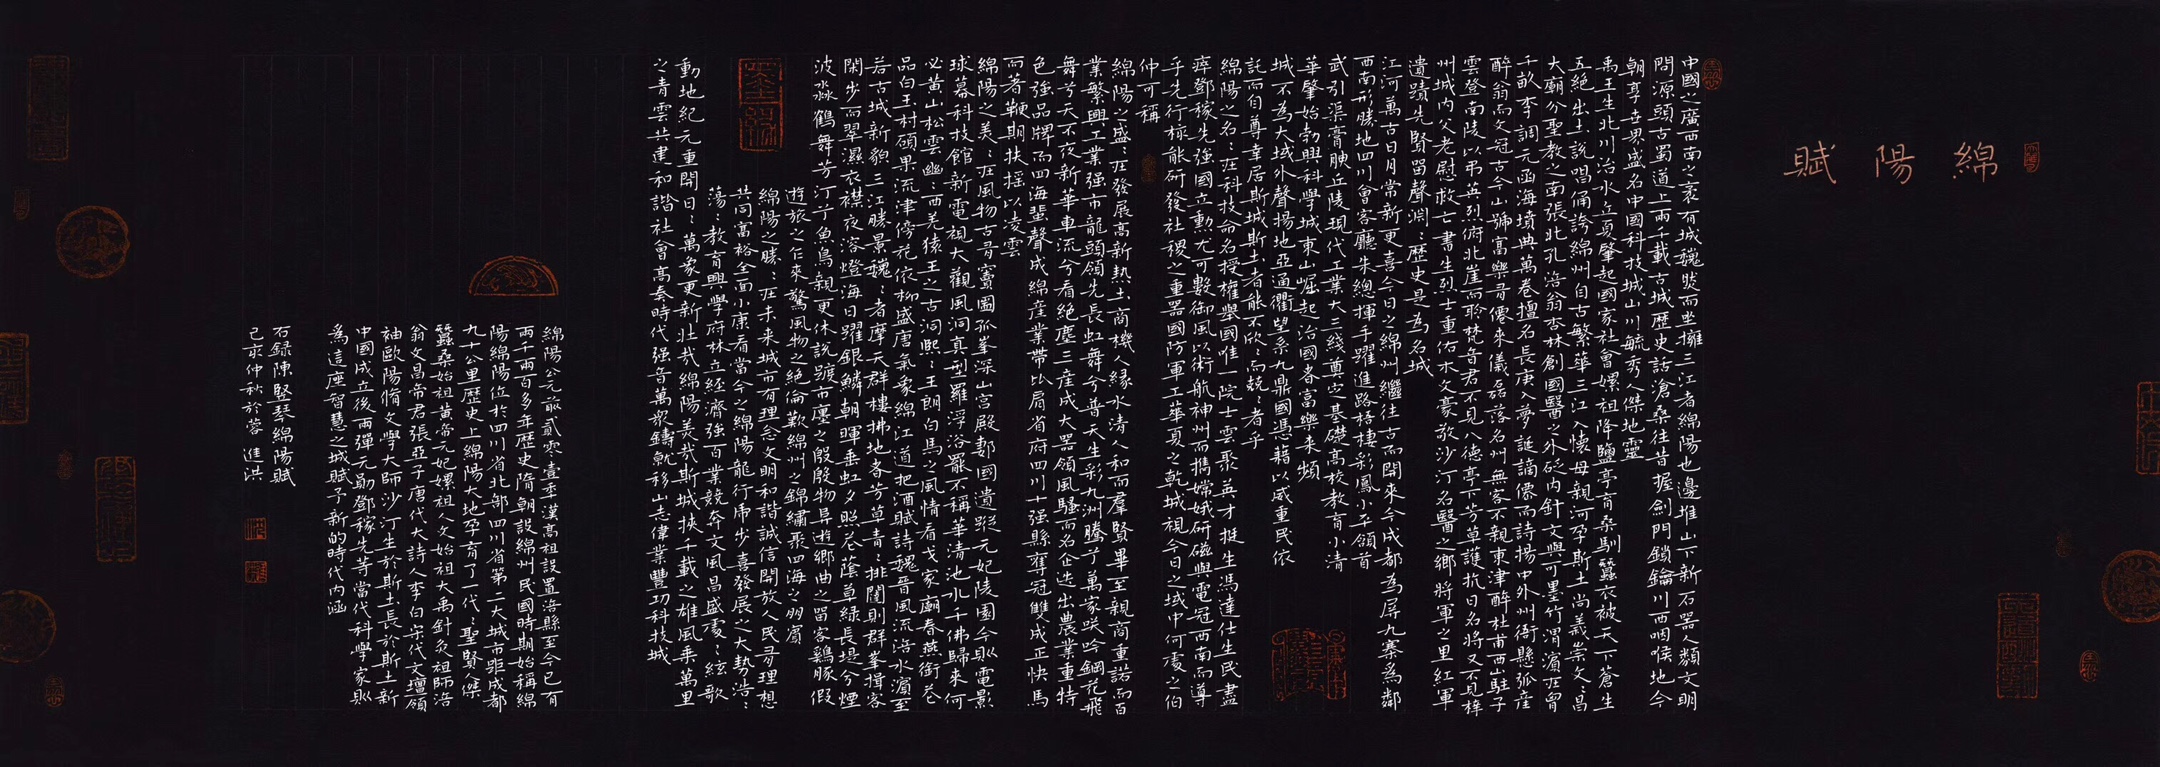 綿陽賦
中國之廣西南之衷有城巍奘而坐擁三江者綿陽也邊堆山下新石器人類文明
問源頭古蜀道上兩千載古城歷史話滄桑往昔握劍門鎖鑰川西咽喉地今
朝享世界盛名中國科技城山川毓秀人傑地靈
禹王生北川治水立夏肇起國家社會嫘祖降鹽亭育桑馴蠶衣被天下蒼生
五絕出土說唱俑誇綿州自古繁華三江入懷母親河孕斯土尚義崇文昌
大廟分聖教之南張北孔涪翁杏林創國醫之外砭內針文與可墨竹渭濱在胷
千畝李調元函海墳典萬卷擅名長庚入夢誕謫僊而詩揚中外州衙懸弧産
醉翁而文冠古今山號富樂骨僊來儀磊落名州無客不親東津醉杜甫西山駐子
雲登南陵以弔英烈俯北崖而聆梵音君不見八德亭下芳草護抗日名將又不見梓
州城內父老慰救亡書生烈士重佑水文豪敬沙汀名醫之鄉將軍之里紅軍
遺蹟先賢留聲淵淵歷史是為名城
江河萬古日月常新更喜今日之綿州繼往古而開來今成都為屏九寨爲鄰
西南形勝地四川會客廳朱總揮手躍進路梧棲彩鳳小平領首
武引渠膏腴丘陵現代工業大三綫奠定基礎高校教育小清
華肇始勃興科學城東山崛起治國者富樂来頻
城不為大域外聲揚地亞通衢望系九鼎國憑藉以威重民依
託而自尊幸居斯城斯土者能不欣欣而兢兢者乎
綿陽之名在科技命名授權舉國唯一院士雲聚英才挺生馮達仕生民盡
瘁鄧稼先強國立勳尤可數御風以術航神州而擕嫦娥研磁與電冠西南而導
乎先行極能研發社稷之重器國防軍工華夏之乾城視今日之域中何處之伯
仲可稱
綿陽之盛在發展高新熱土商機人緣水清人和而羣賢畢至親商重諾而百
業繁興工業强市龍頭領先長虹舞兮普天生彩九洲騰兮萬家咲吟鋼花飛
舞兮天不夜新華車流兮看絕塵三産成大器領風騷而名企迭出農業重特
色強品牌而四海蜚聲成綿産業帶比肩省府四川十强縣奪冠雙成正快馬
而著鞭期扶摇以凌雲
綿陽之美在風物古骨竇圌孤峯深山宮殿郪國遺蹤元妃陵園今臥電影
球幕科技館新電視大觀風洞真型羅浮浴罷不稱華清池水千佛歸來何
必黃山松雲幽幽西羌猿王之古洞熙熙王朗白馬之風情看戈家廟春燕銜卷
品白玉村碩果流津傍花依柳盛唐氣象綿江道把酒賦詩魏晉風流涪水濱至
若古城新貌三江勝景巍巍者摩天群樓拂地者芳草青青排闥則群峯揖客
閑步而翠濕衣襟夜溶燈海日躍銀鱗朝暉垂虹夕照花蔭草綠長堤兮煙
波淼鶴舞芳汀兮魚鳥親更休說踱市廛之殷殷物昇遊鄉曲之留客鷄豚假
遊旅之乍來驚風物之絕倫歎綿州之錦繡聚四海之朋賓
綿陽之勝在未来城市有理念文明和諧誠信開放人民骨理想
共同富裕全面小康看當今之綿陽龍行虎步喜發展之大勢浩浩
蕩蕩教育興學府林立經濟强百業競奔文風昌盛處處絃歌
動地紀元重開日萬象更新壯哉綿陽美哉斯城挾千載之雄風乘萬里
之青雲共建和諧社會高奏時代强音萬衆鑄就移山志偉業豐功科技城
綿陽公元前貳零壹年漢高祖設置涪縣至今已有
兩千兩百多年歷史隋朝設綿州民國時期始稱綿
陽綿陽位於四川省北部四川省第二大城市距成都
九十公里歷史上綿陽大地孕育了一代代聖賢人傑
蠶桑始祖黃帝元妃嫘祖人文始祖大禹針灸祖師涪
翁文昌帝君張亞子唐代大詩人李白宋代文壇領
袖歐陽脩文學大師沙汀生於斯土長於斯土新
中國成立後兩彈元勛鄧稼先等當代科學家則
爲這座智慧之城賦予新的時代內涵
右録陳堅琴綿陽賦
己亥仲秋於蓉 進洪